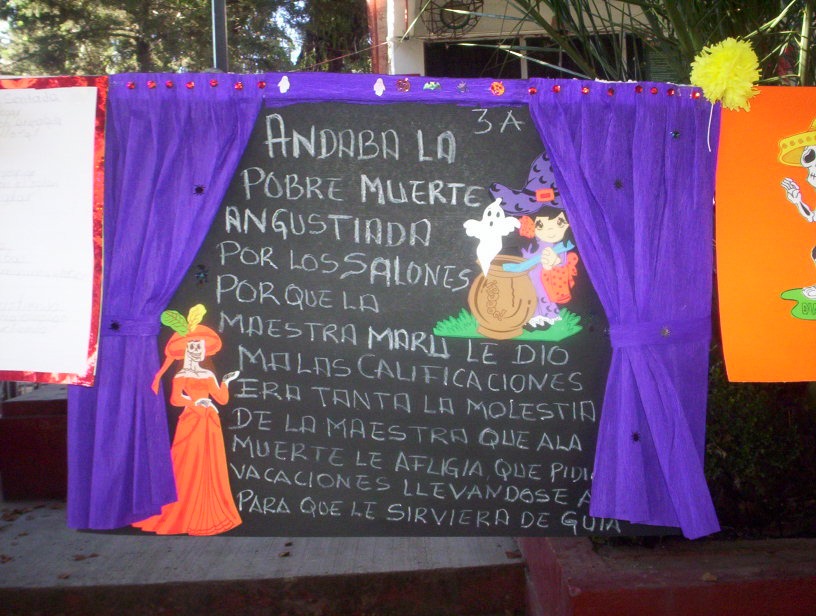 3A
ANDABA LA
POBRE MUERTE
ANGUSTIADA
POR LOS SALONES
POR QUE LA
MAESTRA MARU LE DIO
MALAS CALIFICACIONES
ERA TANTA LA MOLESTIA
DE LA MAESTRA QUE ALA
MUERTE LE AFLIGIA QUE PIDI
VACACIONES LLEVANDOSE A
PARA QUE LE SIRVIERA DE GUIA